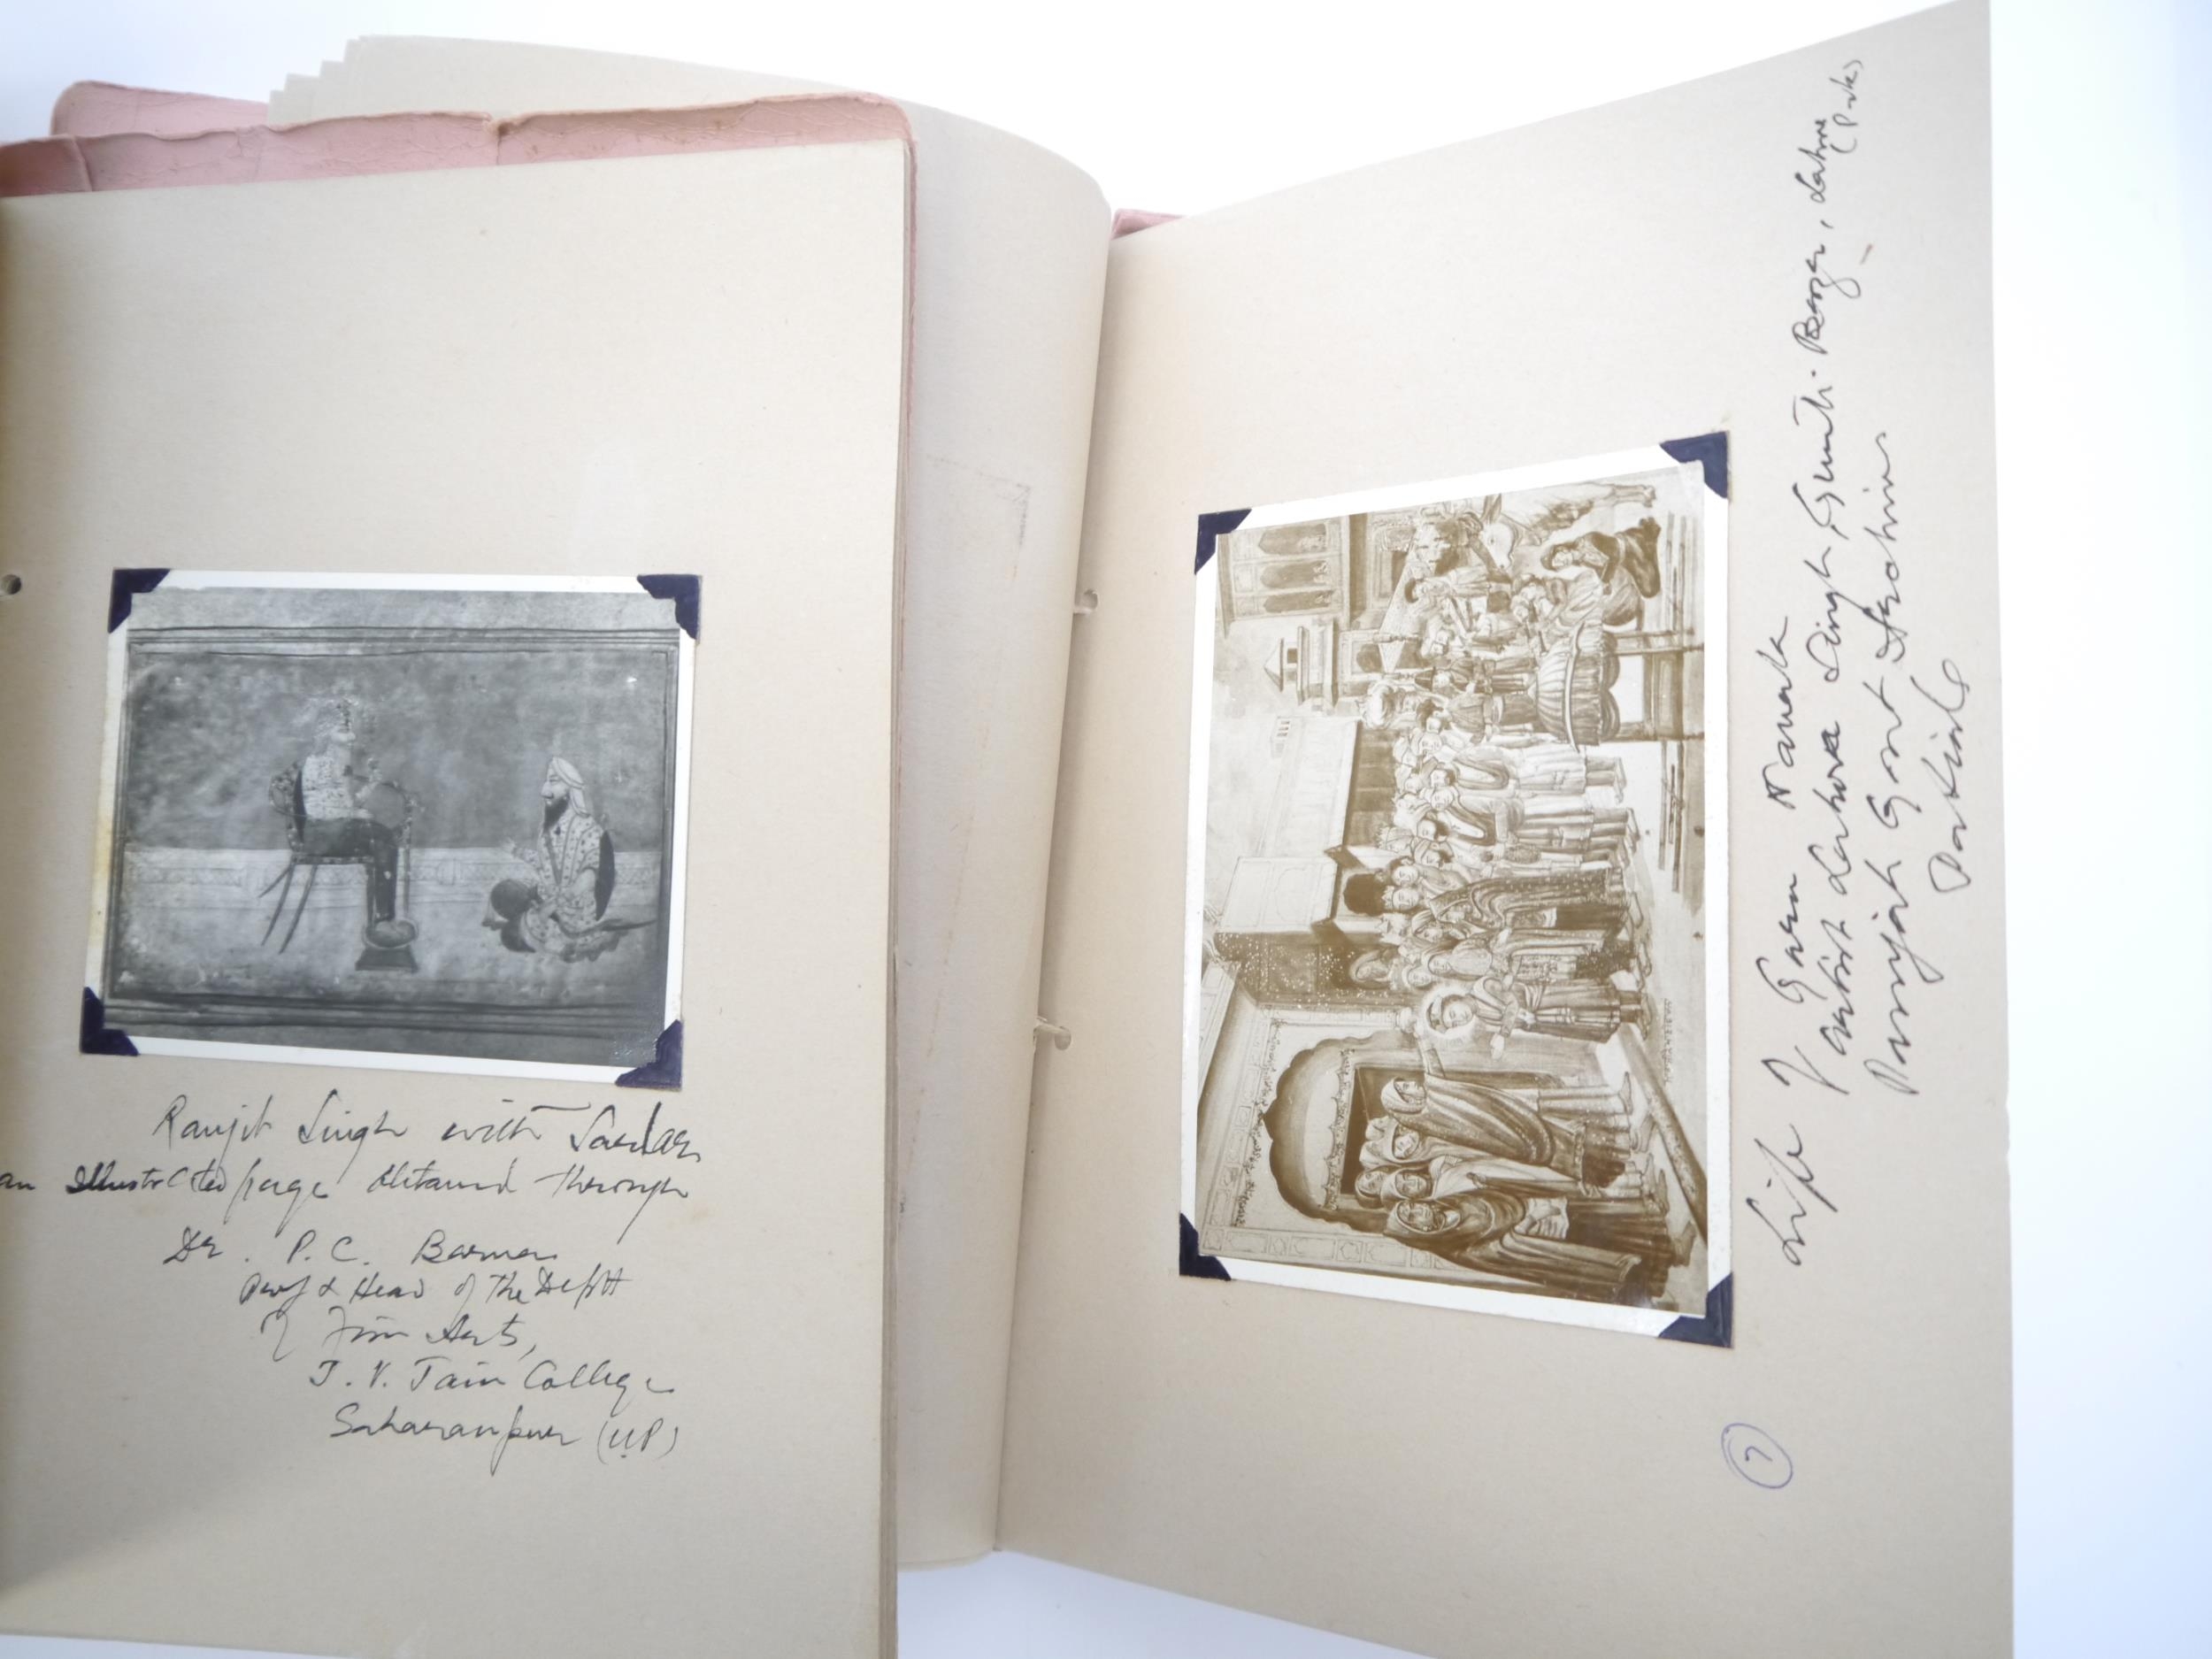 Ranjit Singh with Sardar
an Illustrated page obtained through
Dr. P.C. Barman
Prof & Head of the Deptt
of Fine Arts,
J.V. Jain College
Saharanpur (U.P)
Life of Guru Nanak
artist Lahora Singh, Gumti Bazar, Lahore
(Pak)
Punjab Govt Archives
Patiala
7